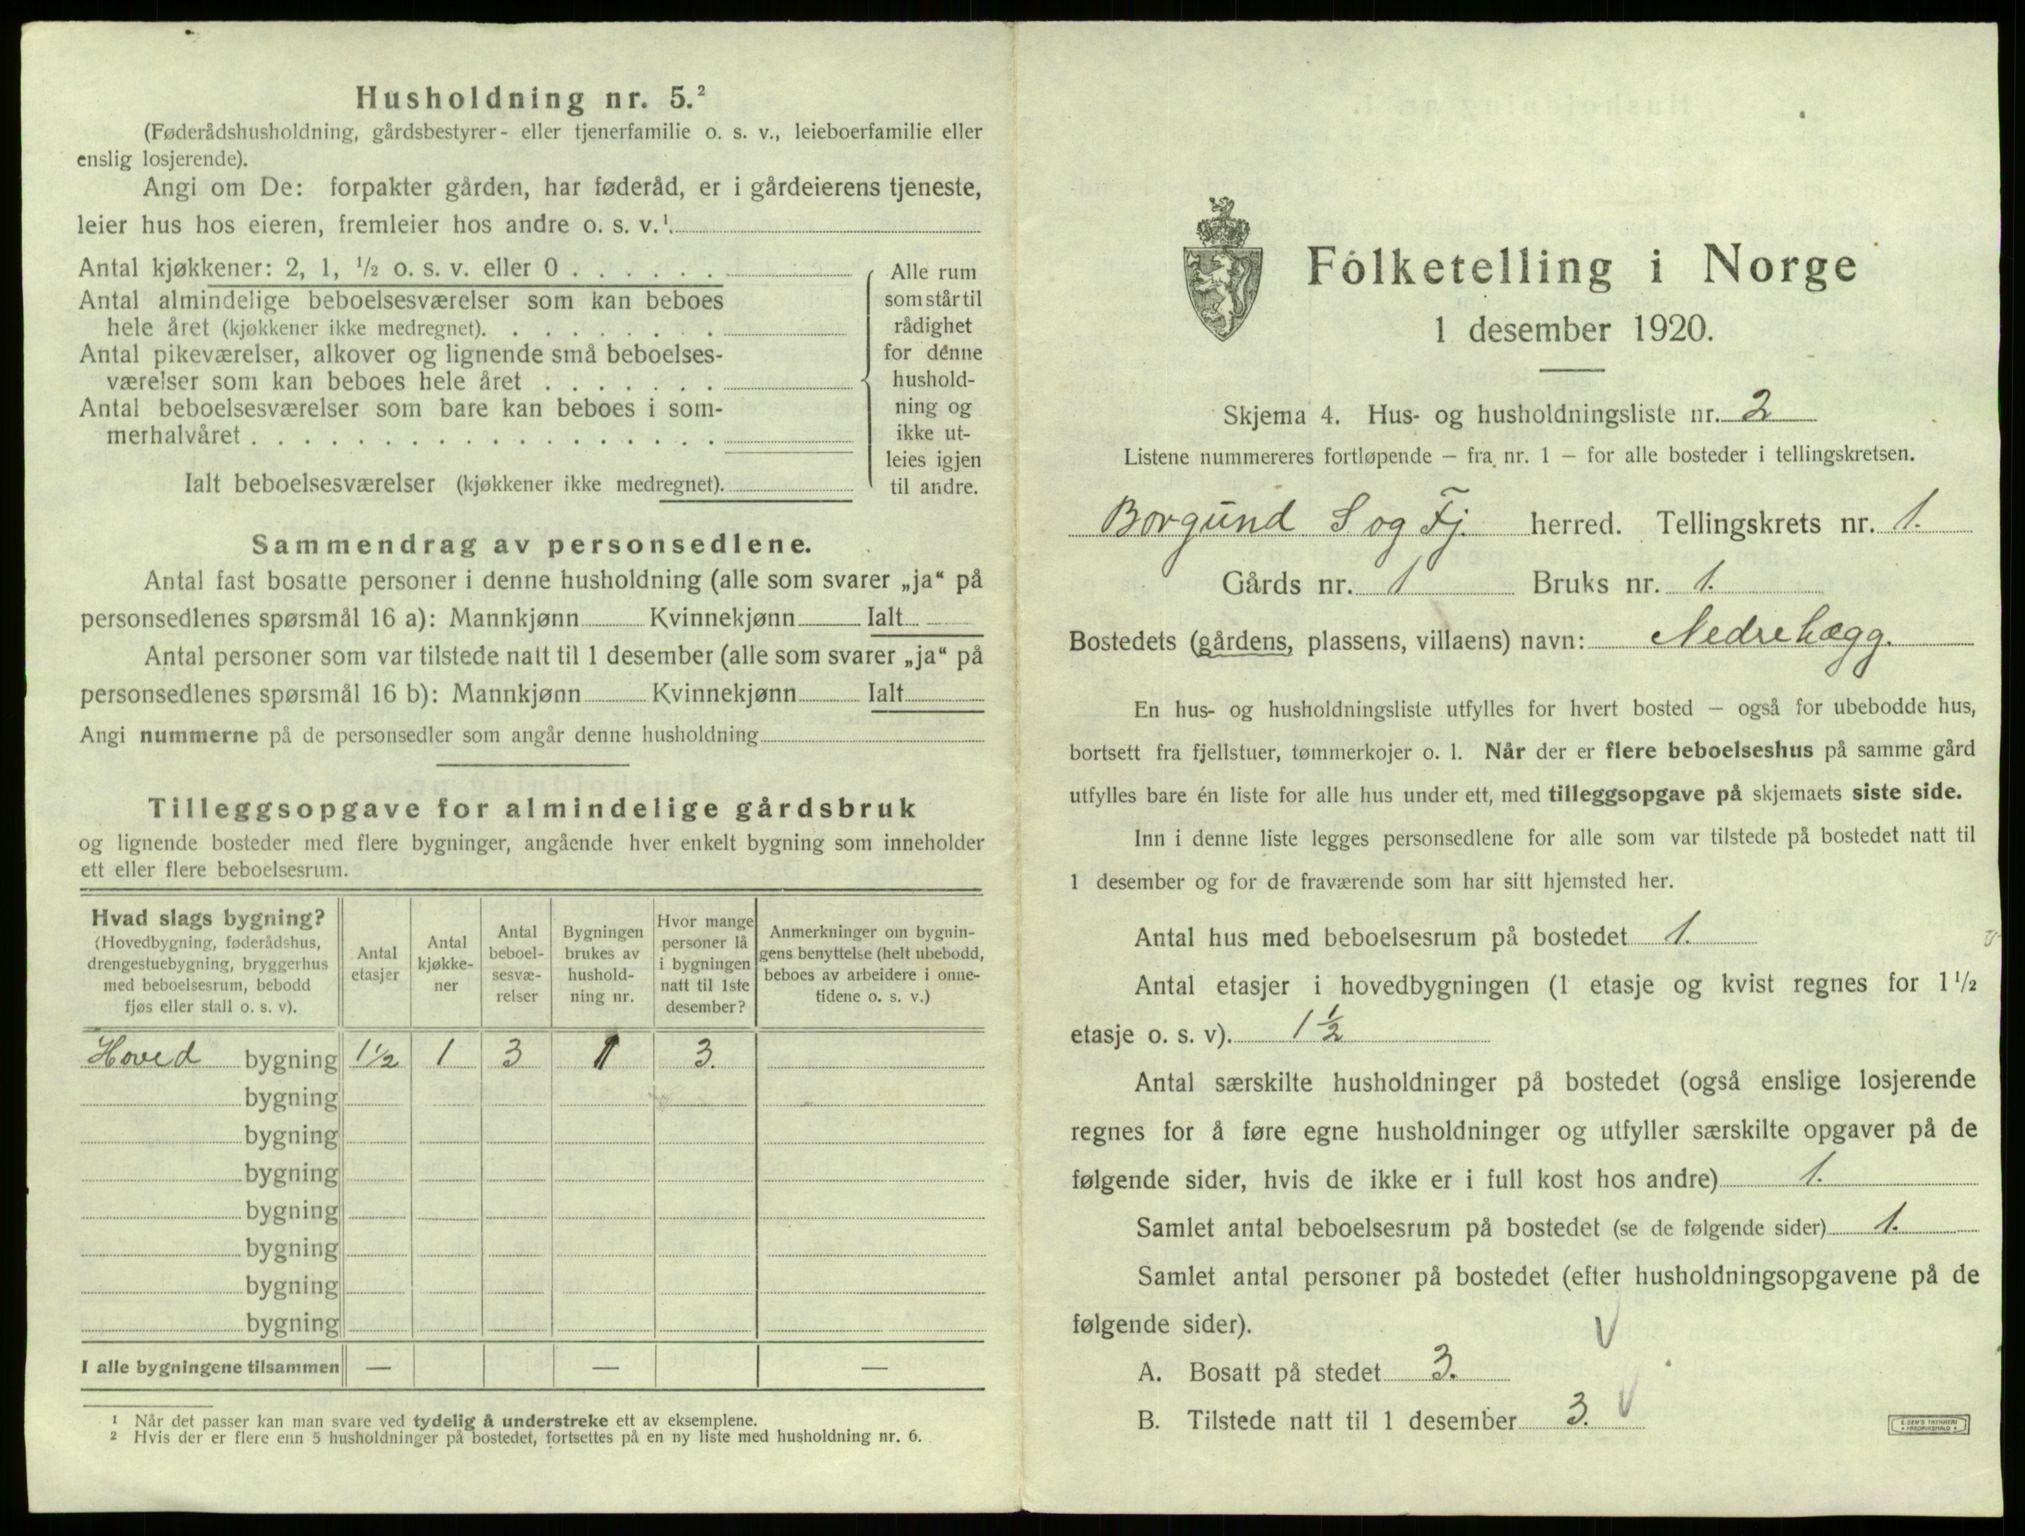 Husholdning nr. 5.²
(Føderådshusholdning, gårdsbestyrer- eller tjenerfamilie o. s. v., leieboerfamilie eller
enslig losjerende).
Angi om De: forpakter gården, har føderåd, er i gårdeierens tjeneste,
leier hus hos eieren, fremleier hos andre o. s. v.¹
Antal kjøkkener: 2, 1, ½ o. s. v. eller 0 . . . . . .
Antal almindelige beboelsesværelser som kan beboes
hele året (kjøkkener ikke medregnet). . . . . . . . .
Antal pikeværelser, alkover og lignende små beboelses-
værelser som kan beboes hele året . . . . . . .
Antal beboelsesværelser som bare kan beboes i som-
merhalvåret . . . . . . . . . . . . . . . . . .
Ialt beboelsesværelser (kjøkkener ikke medregnet).
Alle rum
som står til
rådighet
for denne
hushold-
ning og
ikke ut-
leies igjen
til andre.
Sammendrag av personsedlene.
Antal fast bosatte personer i denne husholdning (alle som svarer „ja“ på
personsedlenes spørsmål 16 a): Mannkjønn Kvinnekjønn Ialt
Antal personer som var tilstede natt til 1 desember (alle som svarer „ja“ på
personsedlenes spørsmål 16 b): Mannkjønn Kvinnekjønn Ialt
Angi nummerne på de personsedler som angår denne husholdning
Tilleggsopgave for almindelige gårdsbruk
og lignende bosteder med flere bygninger, angående hver enkelt bygning som inneholder
ett eller flere beboelsesrum.
Hvad slags bygning?
(Hovedbygning, føderådshus,
drengestuebygning, bryggerhus
med beboelsesrum, bebodd
fjøs eller stall o. s. v).
Antal
etasjer
Antal
kjøkke-
ner
Antal
beboel-
sesvæ-
relser
Bygningen
brukes av
hushold-
ning nr.
Hvor mange
personer lå
i bygningen
natt til 1ste
desember?
Anmerkninger om bygnin-
gens benyttelse (helt ubebodd,
beboes av arbeidere i onne-
tidene o. s. v.)
Hoved bygning 1½ 1 3 1 3.
bygning
bygning
bygning
bygning
bygning
bygning
bygning
I alle bygningene tilsammen — — —
¹ Når det passer kan man svare ved tydelig å understreke ett av eksemplene.
² Hvis der er flere enn 5 husholdninger på bostedet, fortsettes på en ny liste med husholdning nr. 6.
Folketelling i Norge
1 desember 1920.
Skjema 4. Hus- og husholdningsliste nr. 2
Listene nummereres fortløpende – fra nr. 1 – for alle bosteder i tellingskretsen.
Borgund S og Fj. herred. Tellingskrets nr. 1.
Gårds nr. 1 Bruks nr. 1.
Bostedets (gårdens, plassens, villaens) navn: Nedrehægg.
En hus- og husholdningsliste utfylles for hvert bosted – også for ubebodde hus,
bortsett fra fjellstuer, tømmerkojer o. l. Når der er flere beboelseshus på samme gård
utfylles bare én liste for alle hus under ett, med tilleggsopgave på skjemaets siste side.
Inn i denne liste legges personsedlene for alle som var tilstede på bostedet natt til
1 desember og for de fraværende som har sitt hjemsted her.
Antal hus med beboelsesrum på bostedet 1.
Antal etasjer i hovedbygningen (1 etasje og kvist regnes for 1½
etasje o. s. v). 1½
Antal særskilte husholdninger på bostedet (også enslige losjerende
regnes for å føre egne husholdninger og utfyller særskilte opgaver på de
følgende sider, hvis de ikke er i full kost hos andre) 1.
Samlet antal beboelsesrum på bostedet (se de følgende sider) 1.
Samlet antal personer på bostedet (efter husholdningsopgavene på de
følgende sider).
A. Bosatt på stedet 3.
B. Tilstede natt til 1 desember 3.
E. SEM'S TRYKKERI
FREDRIKSHALD